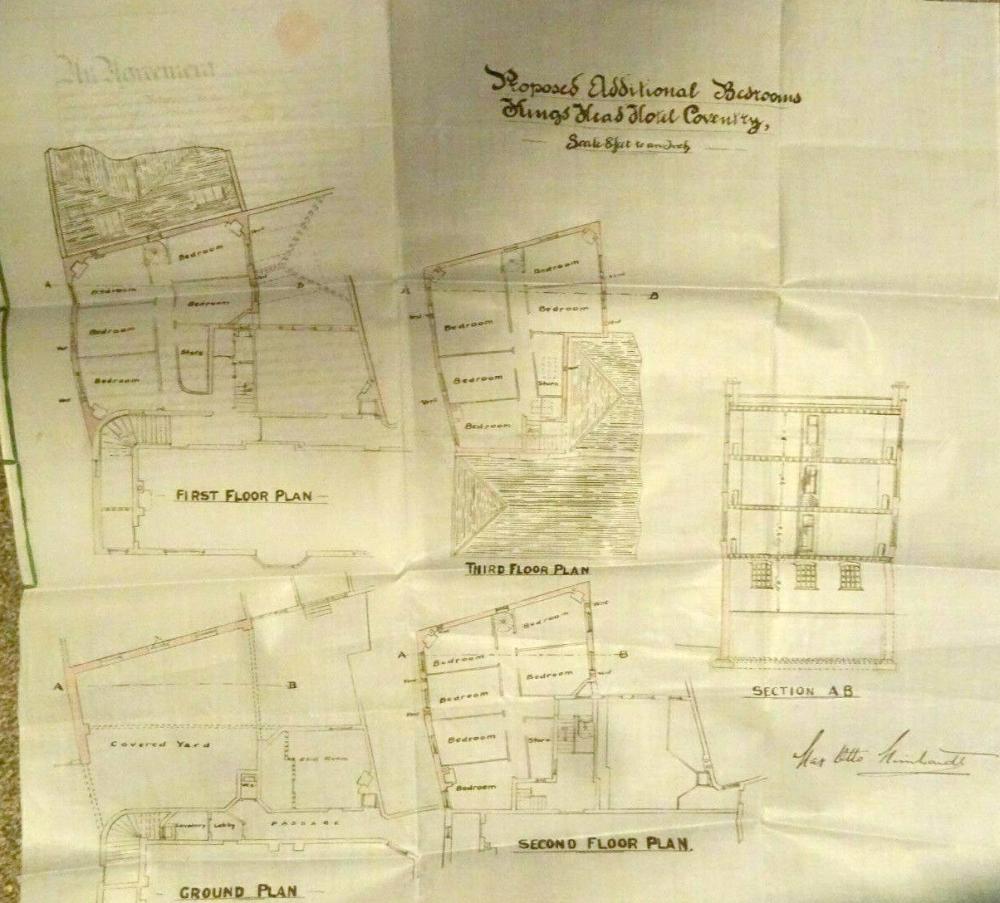 An Agreement
Proposed Additional Bedrooms
Kings Head Hotel Coventry,
Scale 8 feet to an Inch
Bedroom
A
Bedroom
B
Bedroom
Bedroom
Store
Bedroom
FIRST FLOOR PLAN
Bedroom
A
B
Bedroom
Bedroom
Bedroom
Store
Bedroom
THIRD FLOOR PLAN
SECTION A B
Max Otto
A
B
Covered Yard
Lavatory
Lobby
PASSAGE
GROUND PLAN
Bedroom
A
Bedroom
B
Bedroom
Bedroom
Bedroom
Store
Bedroom
SECOND FLOOR PLAN.